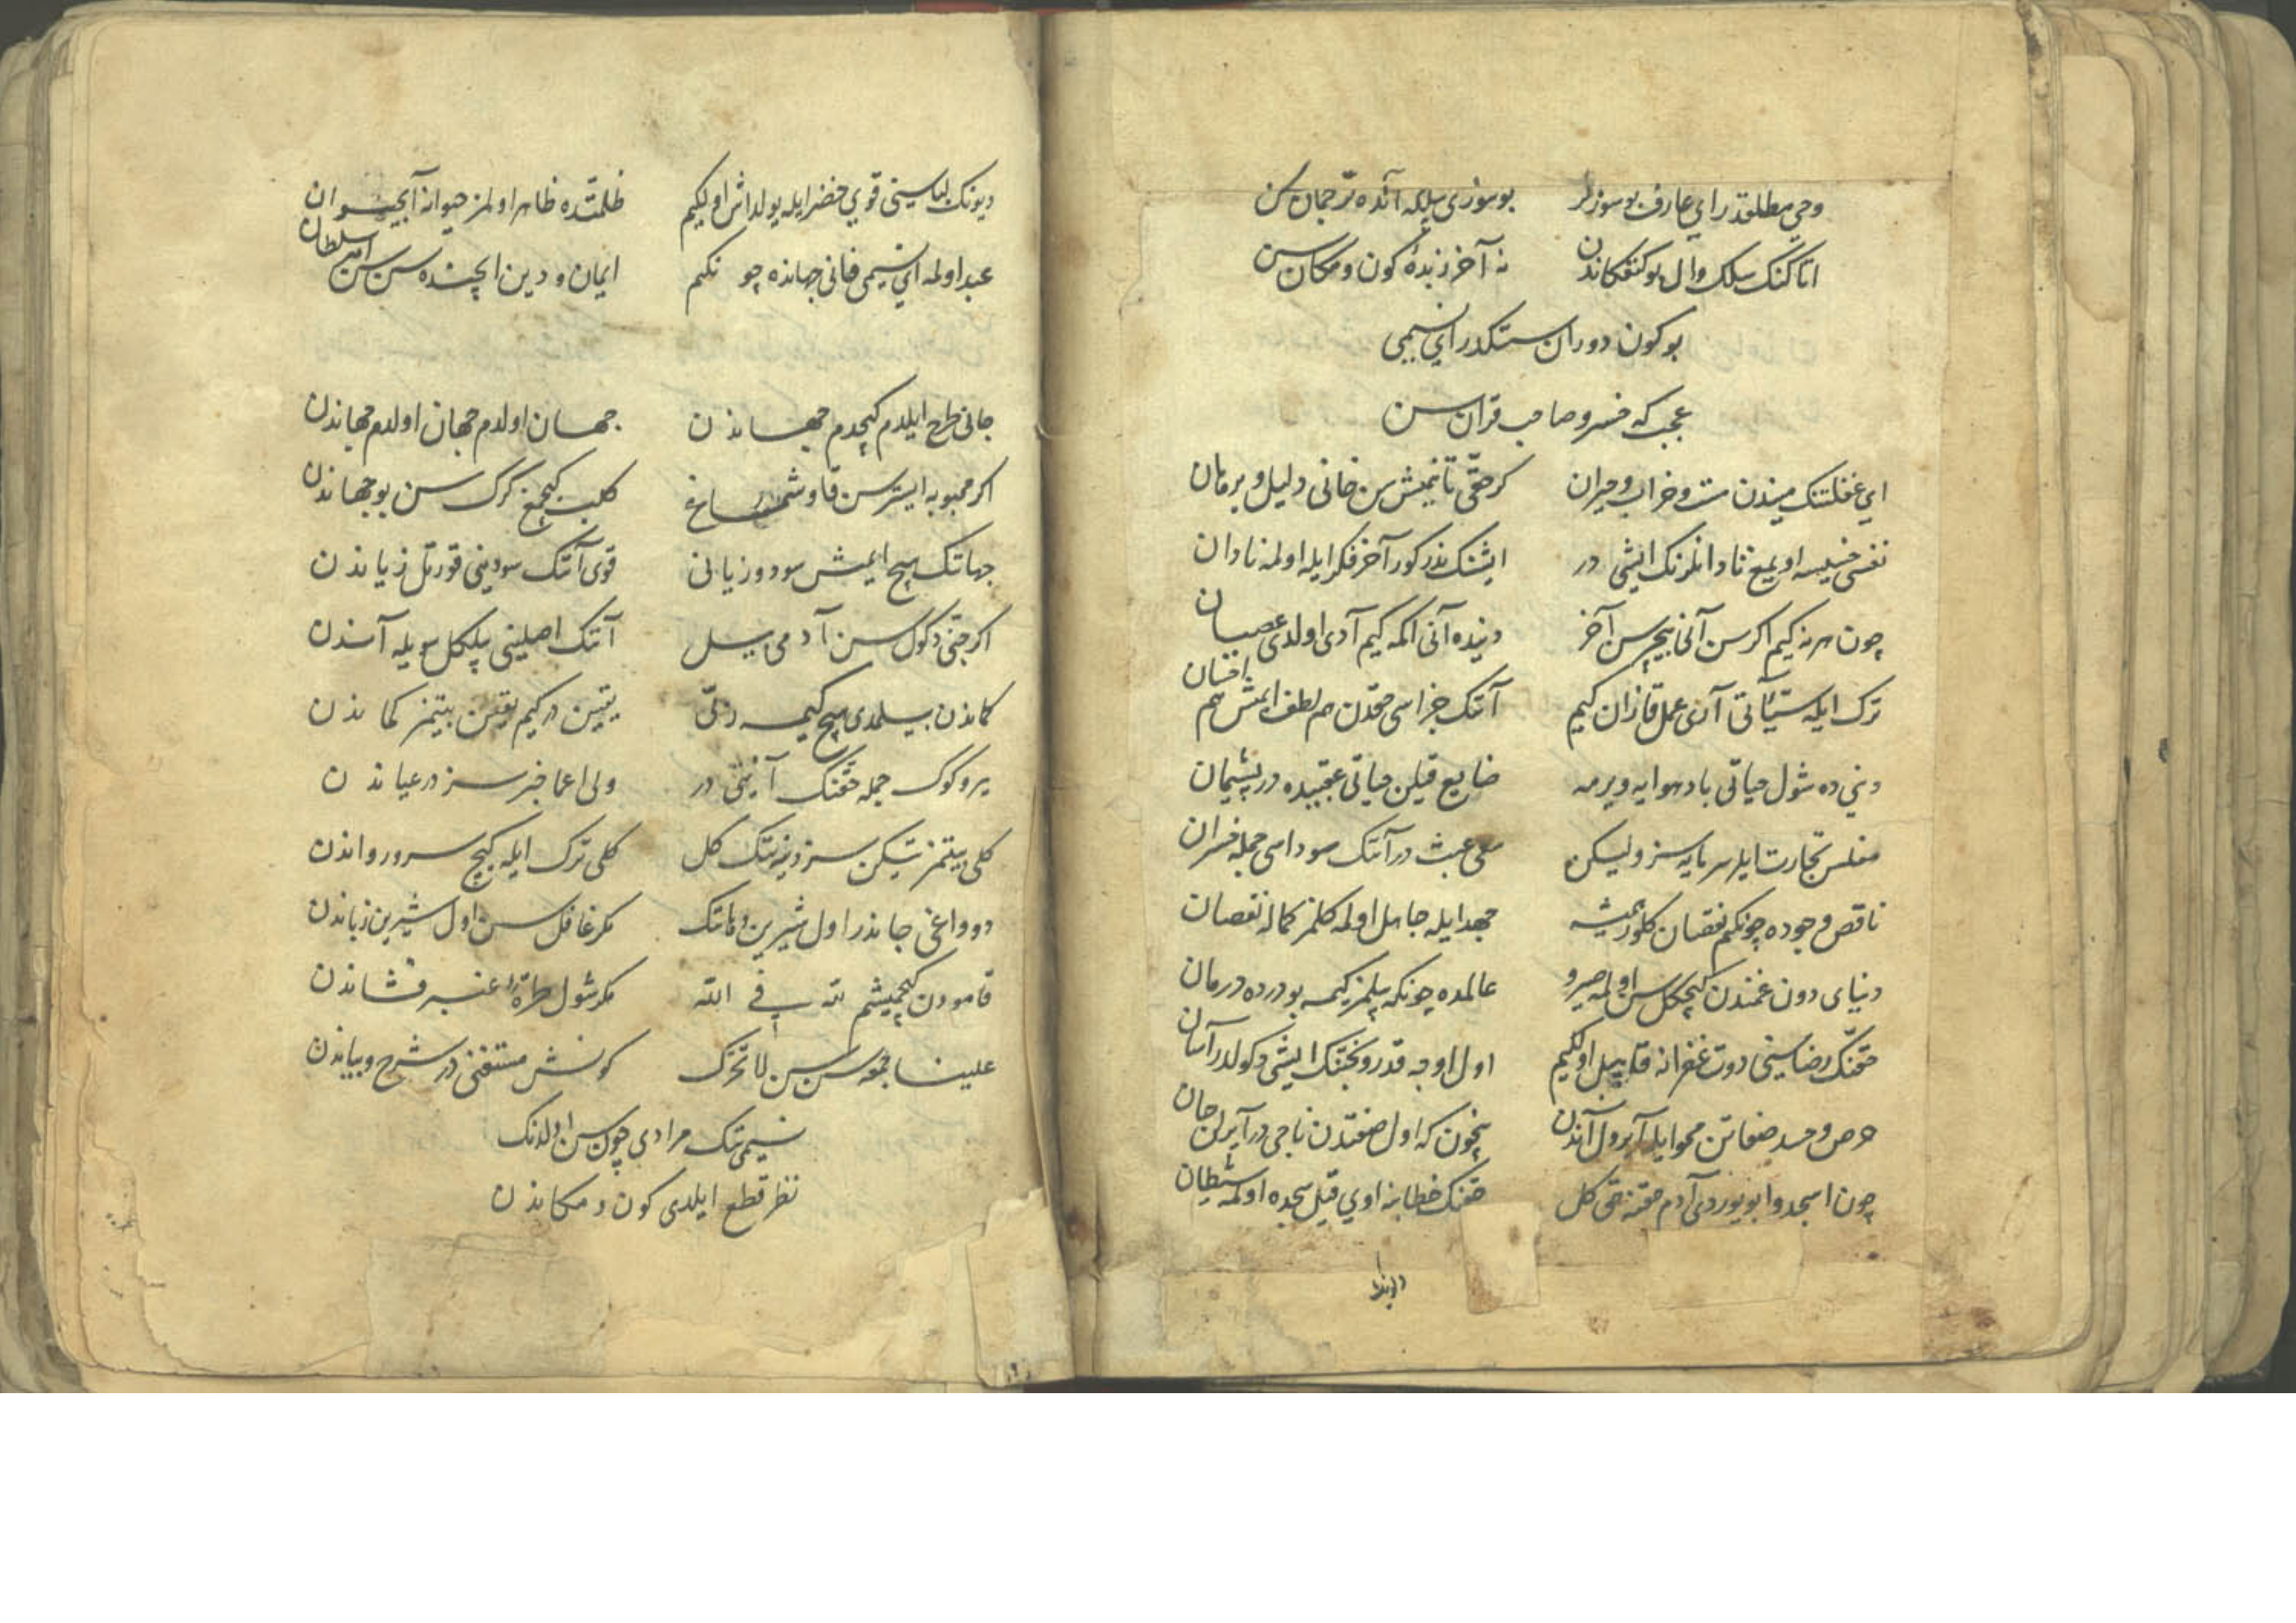 وحي مطلقدر اي عارف بو سوزلر بو سوزی بیلکه آنده ترجمان سن
نه آخر زبدهٔ کون و مکان سن
بو کون دوران سنکدر اي نسیمی
عجب که خسرو صاحب قران سن
اي غفلتنک میندن مست و خراب و حیران کر حقی تانیمش سن خانی دلیل و برهان
نفس خسیسه اویمغ نادانلرنک ایشی در ایشنک ندر کور آخر فکر ایله اولمه نادان
چون هر نه کیم اکرسن آنی بیچرسن آخر دنیده آنی اکمه کیم آدی اولدی عصیان
ترک ایله سیّآتی آری عمل قازان کیم آنک جزاسی حقدن هم لطف ایمش هم احسان
دنیي ده شول حیاتی باد هوایه ویرمه ضایع قیلن حیاتی عقبیده در پشیمان
مفلس تجارت ایلر سرمایه سز ولیکن سعی عبث در آنک سوداسی جمله خسران
ناقص وجوده چونکم نقصان کلور همیشه جهد ایله جاهل اولمه کلمز کماله نقصان
دنیای دون غمندن کیچکل سن اولمه خسرو عالمده چونکه بیلمز کیمسه بو درده درمان
حقنک رضاسینی دوت غفرانه قابل اولکیم اول اوجه قدر و بختنک ایشی دکولدر آسان
حرص و حسد صفاتن محو ایله آیرول آندن نیچون که اول صفتدن ناجی در آیرلن جان
چون اسجدوا بویوردی آدم حقنه حق کل حقنک خطابنه اوي قیل سجده اولمه شیطان
دیونک لباسینی قوي خضر ایله یولداش اولکیم ظلمتده ظاهر اولمز حیوانه آب حیوان
عبد اولمه اي نسیمی فانی جهانده چونکم ایمان و دین ایچنده سن سن امیر سلطان
جانی طرح ایلدم کیچدم جهاندن جهان اولدم جهان اولدم جهاندن
اکر محبوبه ایسترسن قاوشمغ کلب کیچمغ کرک سن بو جهاندن
جهانک هیچ ایمش سود و زیانی قوی آنک سودینی قورتل زیاندن
اکر جنّی دکول سن آدمی بیل آنک اصلینی بیلکل سویله آندن
کماندن بیلمدی هیچ کیمسه ربّی یقین در کیم یقین بیتمز کماندن
یر و کوک جمله حقنک آینه‌سی در ولی اعما خبرسز در عیاندن
کلی بیتمز تیکن سز دنیه‌نک کل کلی ترک ایله کیچ سرو رواندن
دوداغی جاندر اول شیرین دهانک مکر غافل سن اول شیرین زباندن
قامودن کیچمیشم لله في الله مکر شول طرّهٔ عنبر فشاندن
کونش مستغنی در شرح و بیاندن
نسیمی‌نک مرادی چون سن اولدنک
نظر قطع ایلدی کون و مکاندن